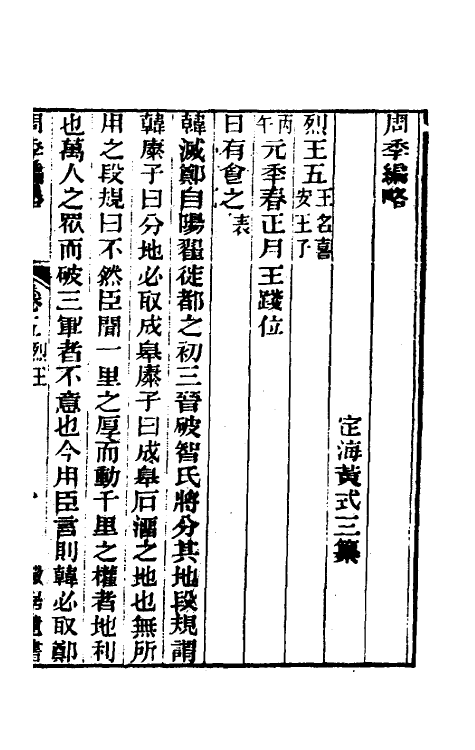 周季編略
定海黃式三纂
烈王五 王名喜安王子
丙午元季春正月王踐位
日有食之 表
韓滅鄭自陽翟徙都之初三晉破智氏將分其地段規謂
韓康子曰分地必取成皋康子曰成皋石溜之地也無所
用之段規曰不然臣聞一里之厚而動千里之權者地利
也萬人之眾而破三軍者不意也今用臣言則韓必取鄭
周季編略 卷五烈王 一 儆居遺書